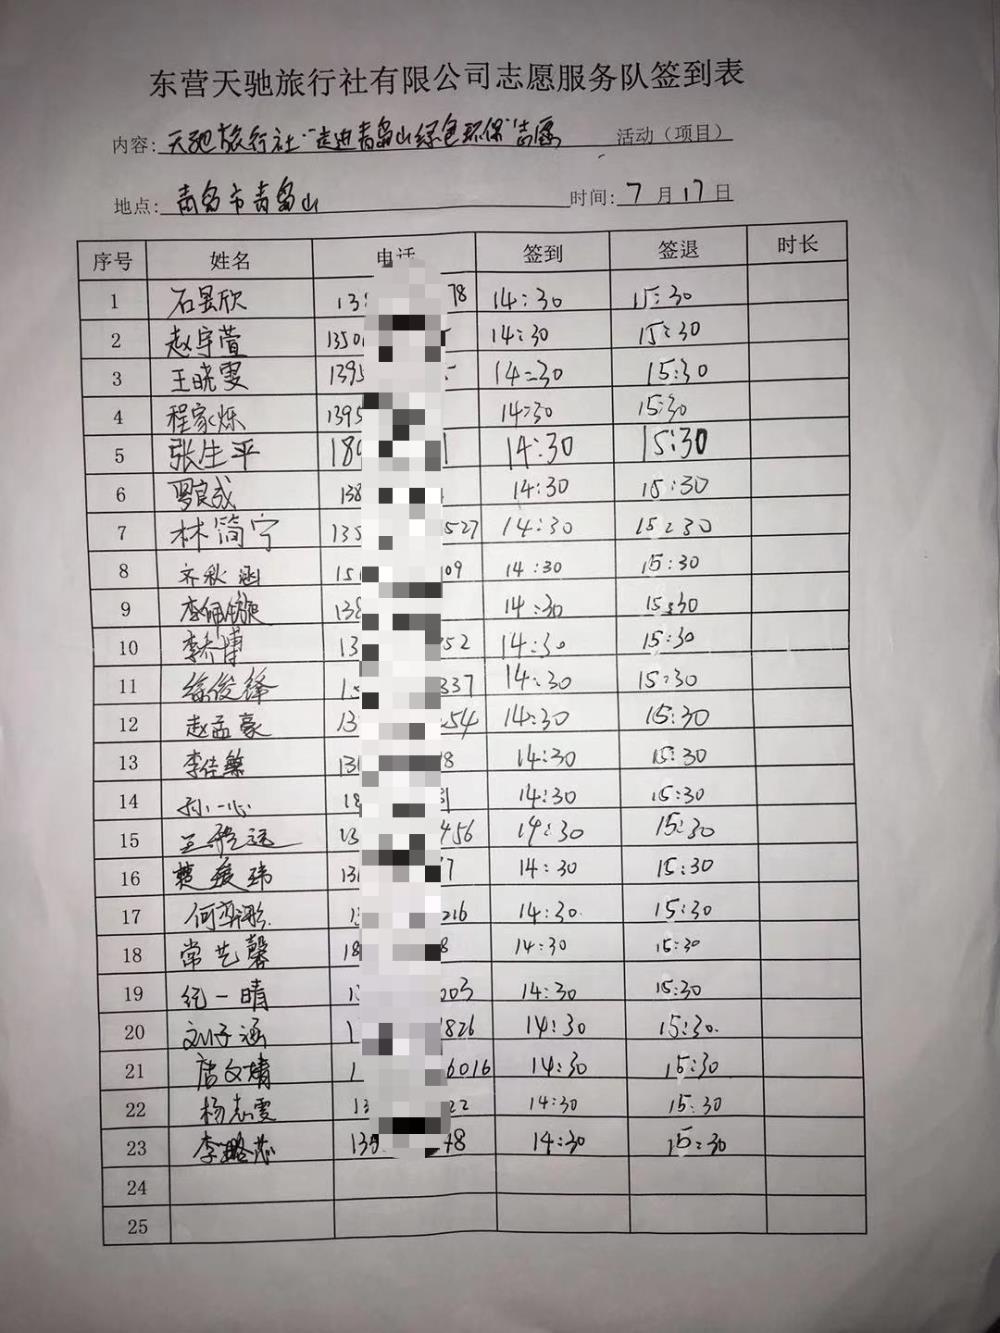 东营天驰旅行社有限公司志愿服务队签到表
内容: 天驰旅行社"走进青岛山绿色环保"志愿 活动（项目）
地点: 青岛市青岛山 时间: 7月17日
序号 姓名 电话 签到 签退 时长
1 石昱欣 13 78 14:30 15:30
2 赵宇萱 1350 14:30 15:30
3 王晓雯 1395 14:30 15:30
4 程家烁 1395 14:30 15:30
5 张生平 180 1 14:30 15:30
6 罗良成 138 14:30 15:30
7 林简宁 135 527 14:30 15:30
8 齐秋涵 15 09 14:30 15:30
9 李佩璇 138 14:30 15:30
10 李乔博 13 352 14:30 15:30
11 徐俊锋 15 337 14:30 15:30
12 赵孟豪 13 54 14:30 15:30
13 李佳 131 8 14:30 15:30
14 孙一心 18 31 14:30 15:30
15 王 13 456 14:30 15:30
16 媛玮 131 7 14:30 15:30
17 何弈 1 216 14:30 15:30
18 常艺馨 18 8 14:30 15:30
19 纪一晴 1 003 14:30 15:30
20 刘子涵 1 826 14:30 15:30
21 唐文婧 1 6016 14:30 15:30
22 杨志雯 13 22 14:30 15:30
23 李 135 48 14:30 15:30
24
25